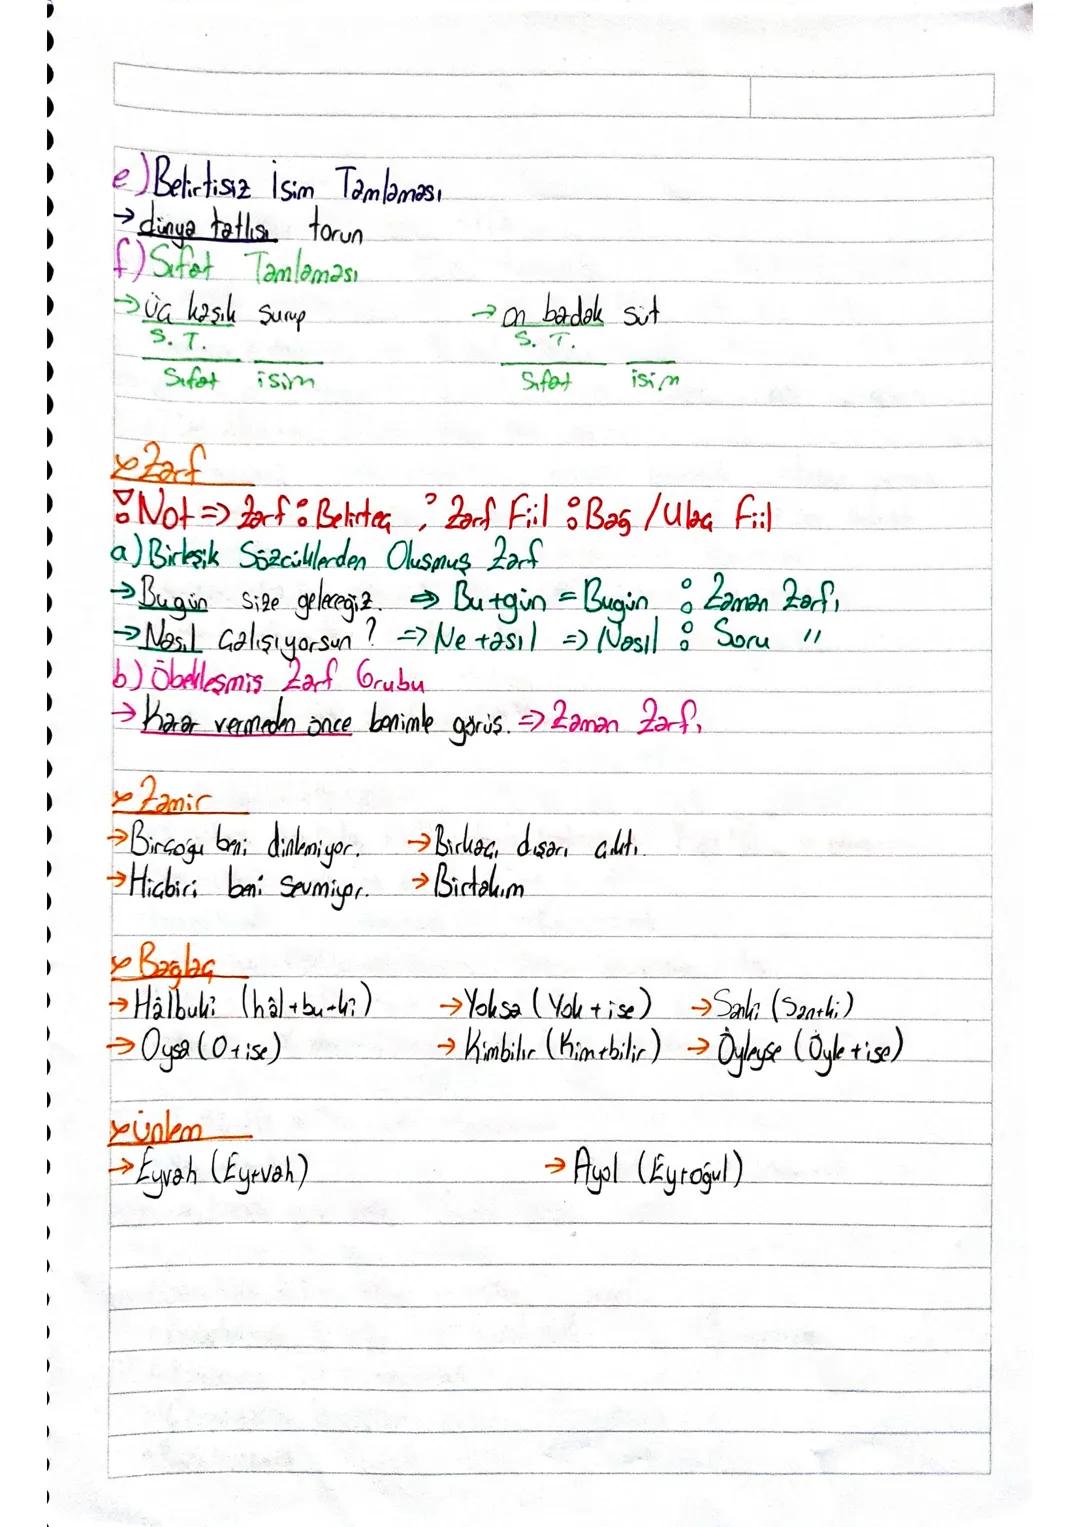 e) Belirtisiz İsim Tamlaması
→ dünya tatlısı torun
f) Sıfat Tamlaması
→ üç kaşık şurup → on bardak süt
S. T. S. T.
Sıfat isim Sıfat isim
Zarf
Not => Zarf : Belirteç ; Zarf Fiil : Bağ / Ulaç Fiil
a) Birleşik Sözcüklerden Oluşmuş Zarf
→ Bugün size geleceğiz. => Bu+gün = Bugün : Zaman Zarfı
→ Nasıl çalışıyorsun ? => Ne + asıl => Nasıl : Soru "
b) Öbekleşmiş Zarf Grubu
→ Karar vermeden önce benimle görüş. => Zaman Zarfı
Zamir
→ Birçoğu beni dinlemiyor. → Birkaçı dışarı çıktı.
→ Hiçbiri beni sevmiyor. → Birtakım
Bağlaç
→ Hâlbuki (hâl+bu+ki) → Yoksa (Yok + ise) → Sanki (San+ki)
→ Oysa (O + ise) → Kimbilir (Kim+bilir) → Öyleyse (Öyle + ise)
Ünlem
→ Eyvah (Ey+vah) → Ayol (Ey+oğul)